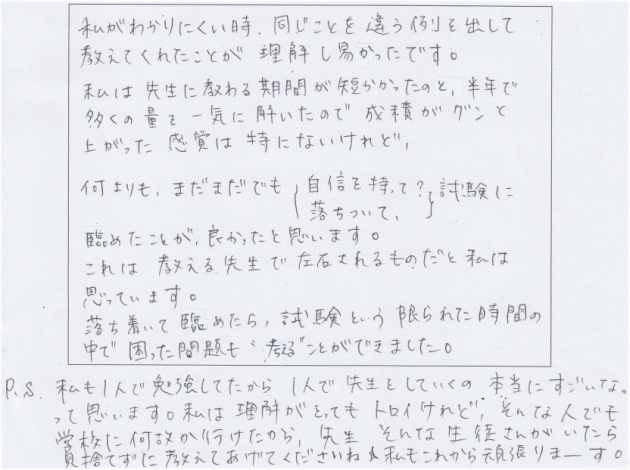 私がわかりにくい時、同じことを違う例を出して
教えてくれたことが理解し易かったです。
私は先生に教わる期間が短かかったのと、半年で
多くの量を一気に解いたので成積がグンと
上がった感覚は特にないけれど、
何よりも、まだまだでも(自信を持って?)試験に
落ちついて、
臨めたことが、良かったと思います。
これは教える先生で左右されるものだと私は
思っています。
落ち着いて臨めたら、試験という限られた時間の
中で困った問題も〝考える〟ことができました。
P.S. 私も1人で勉強してたから1人で先生としていくの本当にすごいな。
って思います。私は理解がとってもトロイけれど、そんな人でも
学校に何故か行けたから、先生そんな生徒さんがいたら
見捨てずに教えてあげてくださいね★私もこれから頑張りまーす。